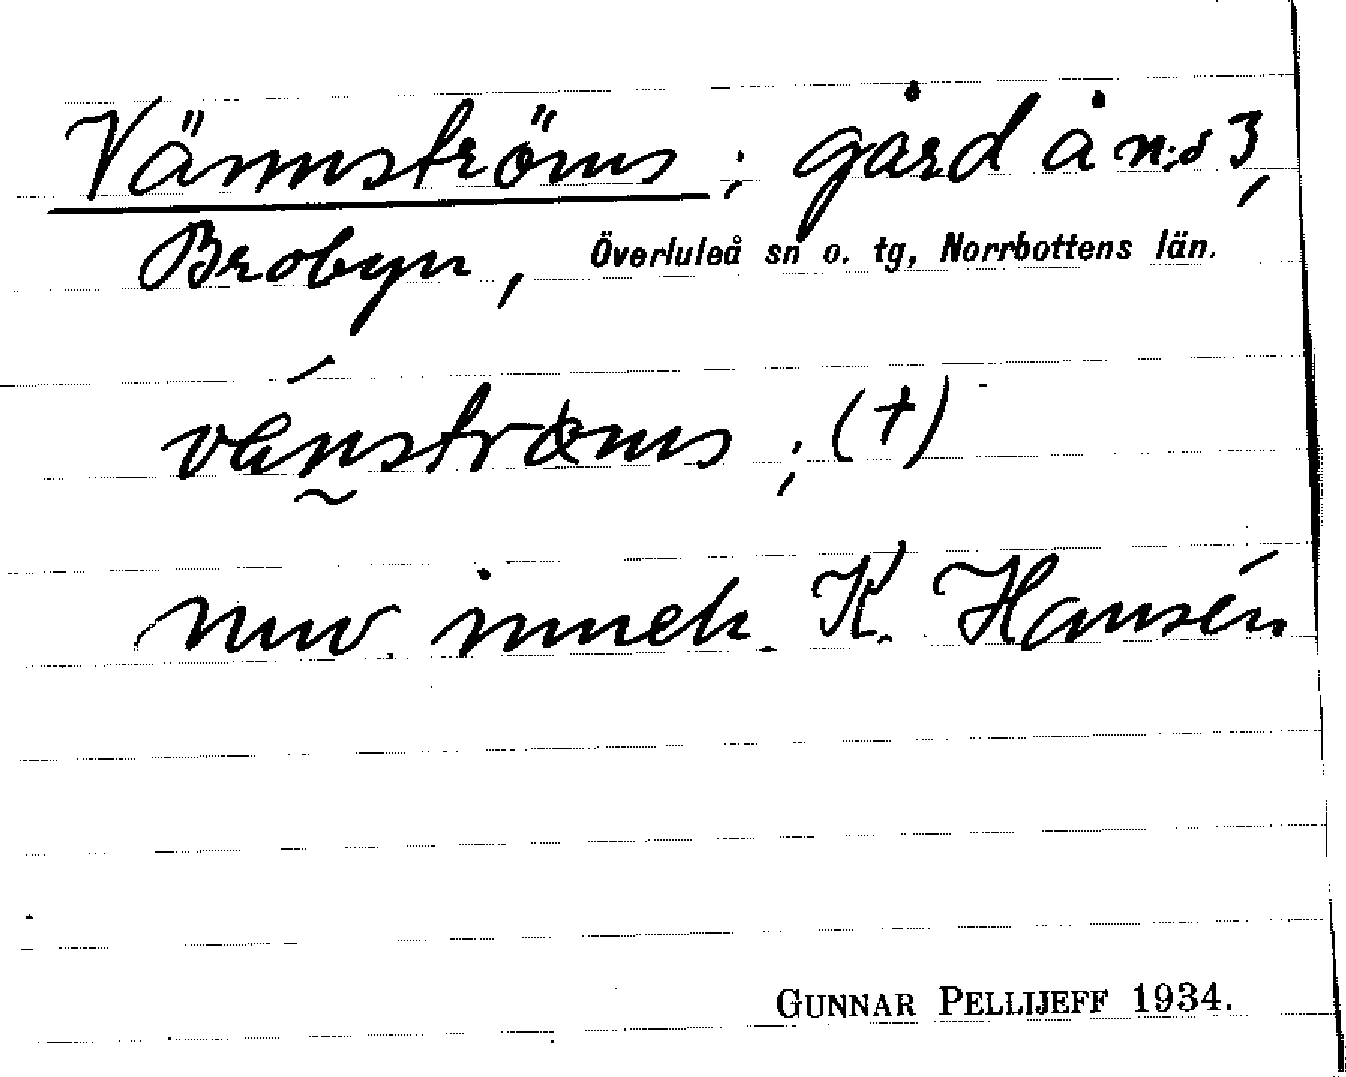 Vännströms; gård å n:o 3,
Brobyn, Överluleå sn o. tg, Norrbottens län.
vä́n̰strøms; (†)
nuv. inneh. K. Hansén
GUNNAR PELLIJEFF 1934.